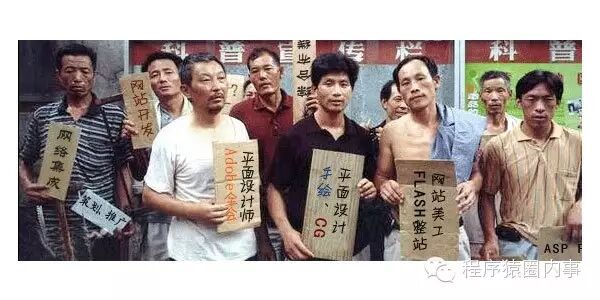 科普宣传栏
科普
网站开发
?
综合布线
网络集成
策划、推广
平面设计师
Adobe
平面设计
手绘、CG
网站美工
FLASH整站
ASP
程序猿圈内事